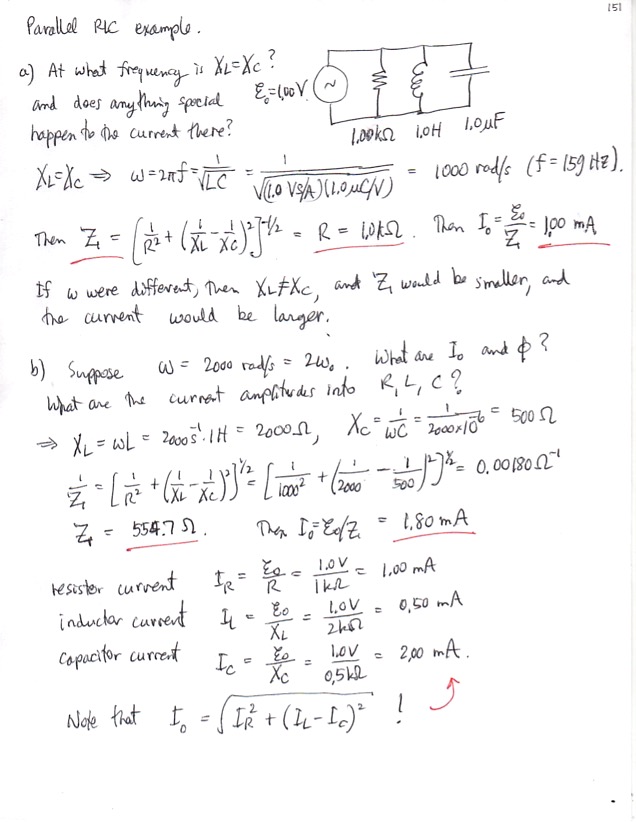 151
Parallel RLC example.
a) At what frequency is X_L=X_C?
and does anything special
happen to the current there?
ℰ₀=1.00 V
~
1.00kΩ 1.0H 1.0μF
X_L=X_C ⇒ ω=2πf = 1/√(LC) = 1/√((1.0 Vs/A)(1.0 μC/V)) = 1000 rad/s (f=159 Hz).
Then Z = [1/R² + (1/X_L - 1/X_C)²]^(-1/2) = R = 1.0kΩ. Then I₀ = ℰ₀/Z = 1.00 mA
If ω were different, then X_L≠X_C, and Z would be smaller, and
the current would be larger.
b) Suppose ω = 2000 rad/s = 2ω₀. What are I₀ and φ?
What are the current amplitudes into R, L, C?
⇒ X_L = ωL = 2000 s⁻¹·1H = 2000Ω, X_C = 1/ωC = 1/(2000×10⁻⁶) = 500 Ω
1/Z = [1/R² + (1/X_L - 1/X_C)²]^(1/2) = [1/1000² + (1/2000 - 1/500)²]^(1/2) = 0.00180 Ω⁻¹
Z = 554.7 Ω. Then I₀=ℰ₀/Z = 1.80 mA
resistor current I_R = ℰ₀/R = 1.0V/1kΩ = 1.00 mA
inductor current I_L = ℰ₀/X_L = 1.0V/2kΩ = 0,50 mA
capacitor current I_C = ℰ₀/X_C = 1.0V/0,5kΩ = 2,00 mA.
Note that I₀ = √(I_R² + (I_L - I_C)²) !